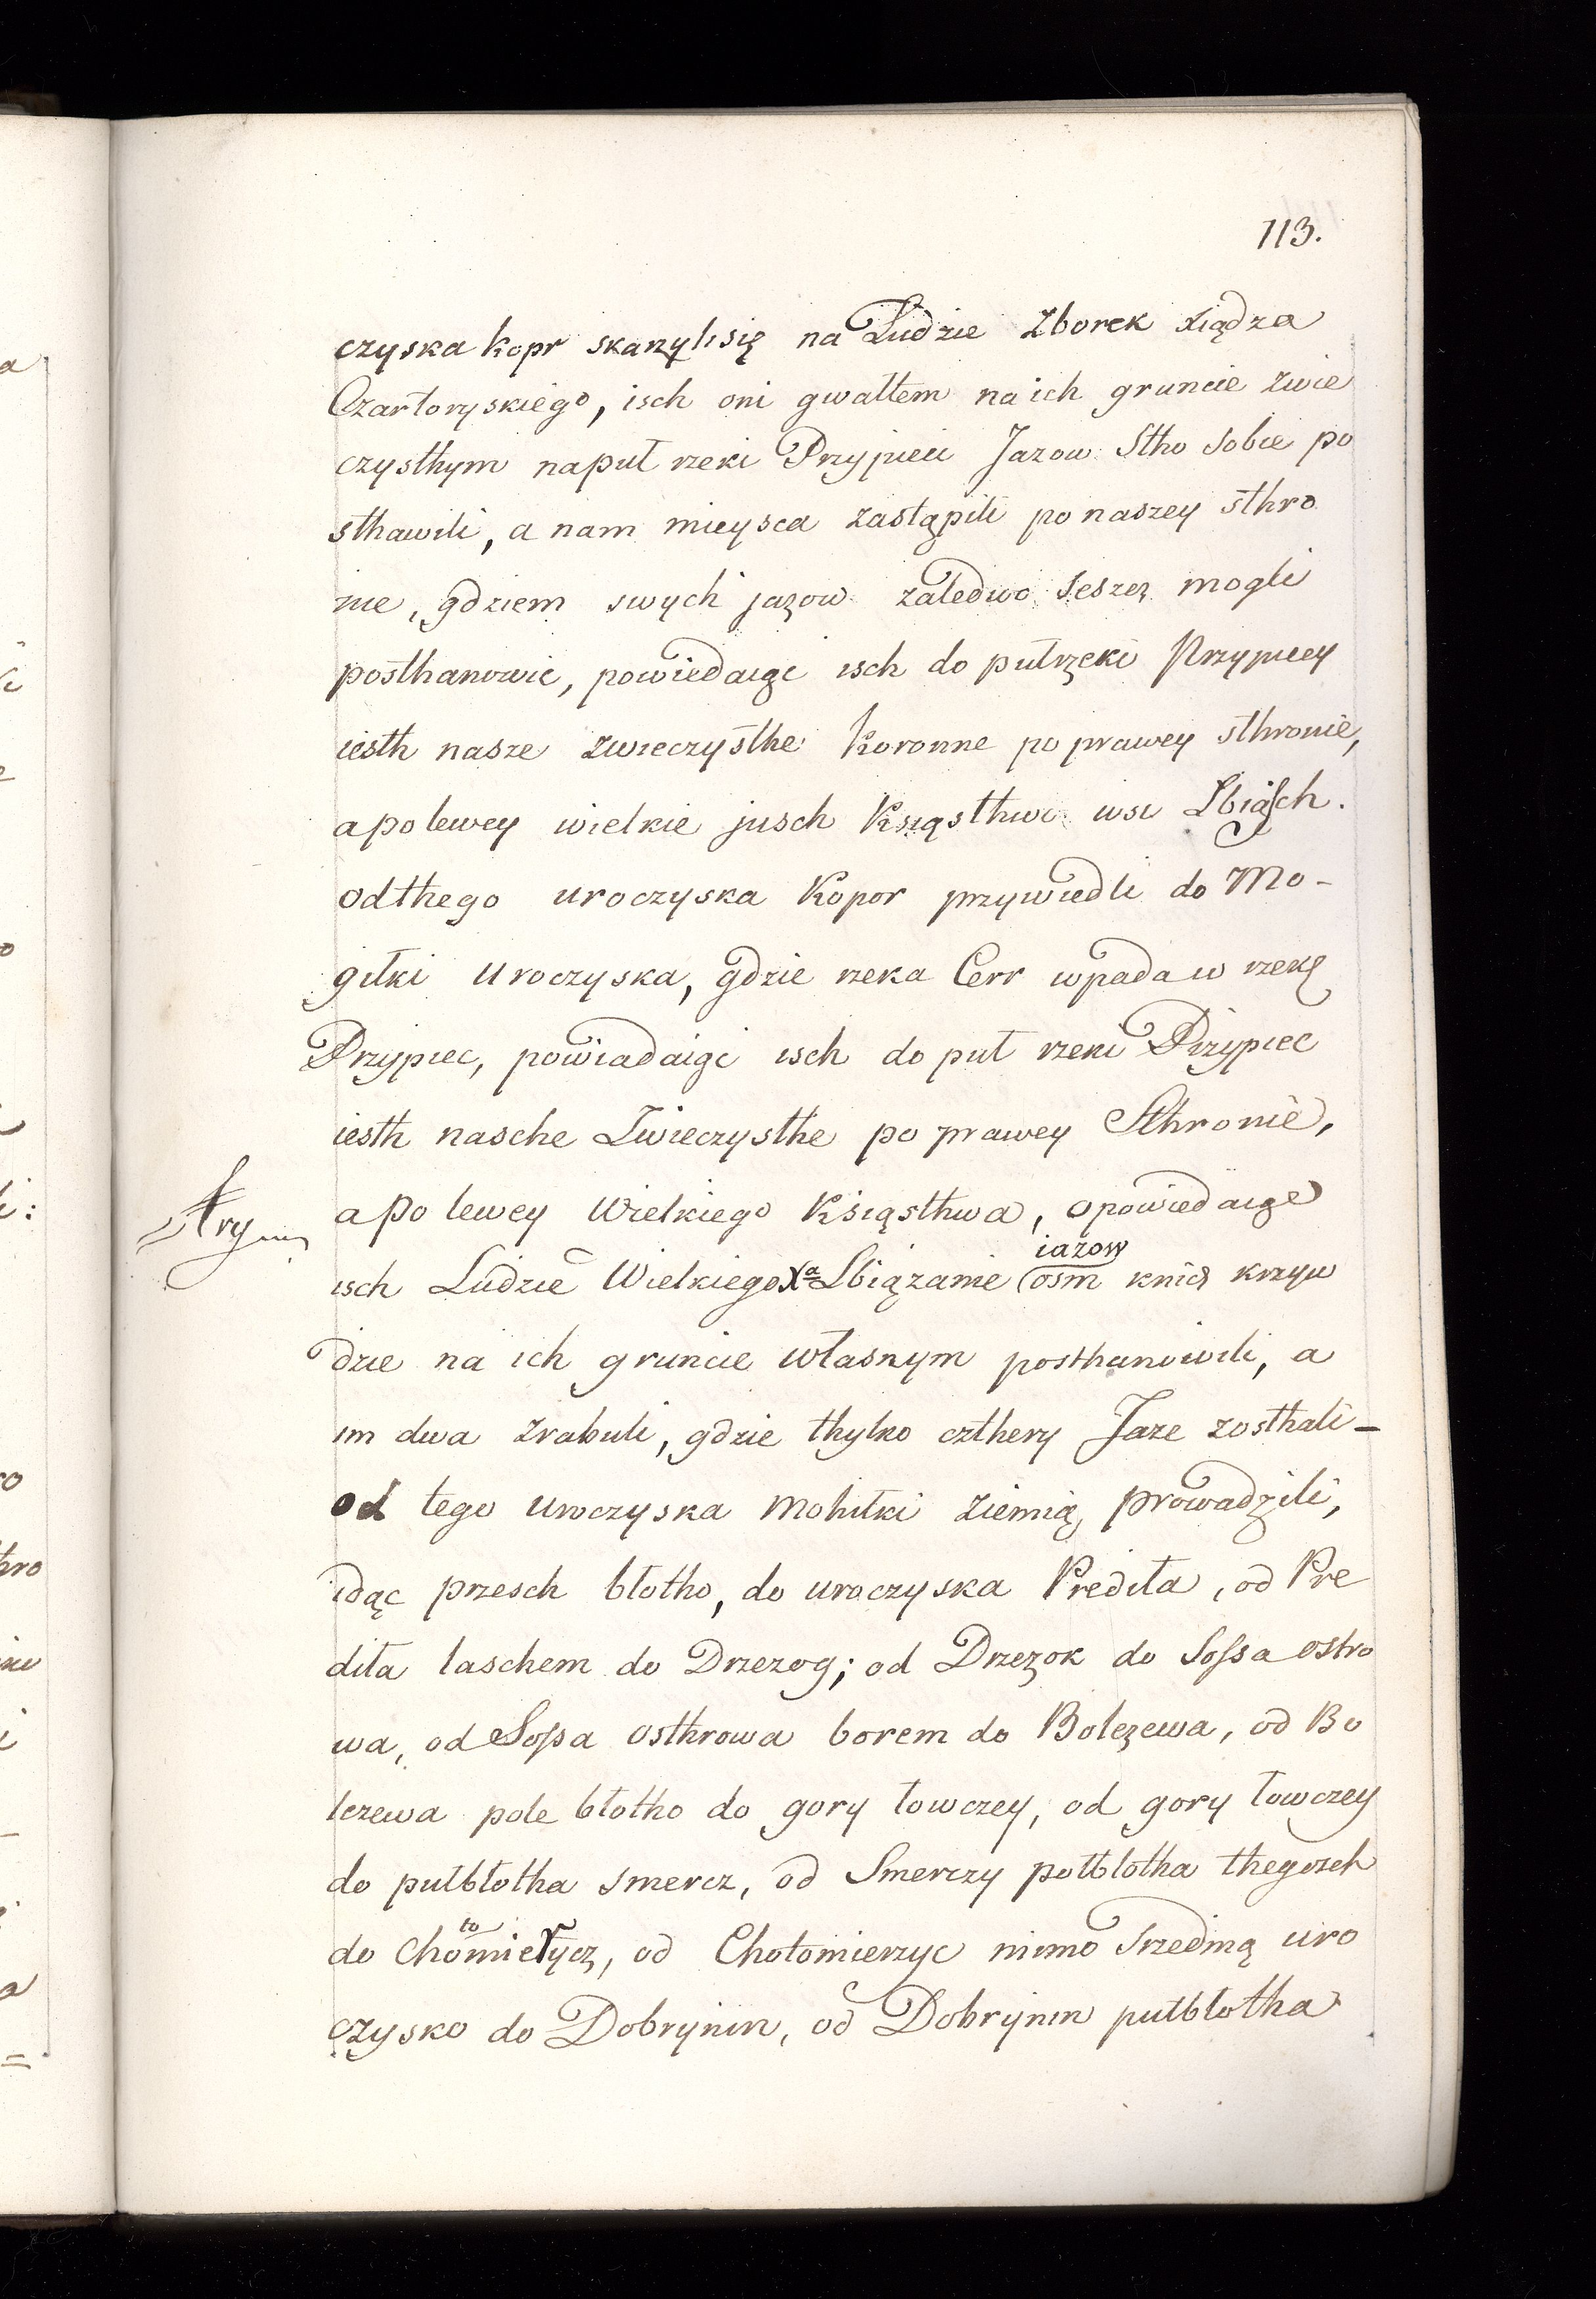 113.
czyska kopr skarzyli się na Ludzie Zborek xiądza
Czartoryskiego, isch oni gwałtem na ich gruncie zwie
czysthym napuł rzeki Przypieci Jazow Stho sobie po
sthawili, a nam mieysca zastąpili po naszey sthro
nie, gdziem swych jazow zaledwo szesz mogli
posthanowic, powiedaiąc isch do pułrzeki Przypiecy
iesth nasze zwieczysthe Koronne po prawey sthronie,
a po lewey wielkie jusch Księsthwo wsi Lbiasch.
Odthego uroczyska Kopor przywiedli do Mo-
giłki uroczyska, gdzie rzeka Cerr wpada w rzekę
Przypiec, powiadaiąc isch do puł rzeki Przypiec
iesth nasche Zwieczysthe po prawey Sthronie,
a po lewey Wielkiego Księsthwa, opowiedaiąc
iazow
isch Ludzie Wielkiego Xa Lbiązanie osm knich krzyw
dzie na ich gruncie własnym posthanowili, a
im dwa zrabuli, gdzie thylko czthery Jaze zosthali –
od tego uroczyska Mohiłki ziemią prowadzili,
idąc przesch błotho, do uroczyska Prediła, od Pre
diła laschem do Drzezog; od Drzezok do Sossa ostro
wa, od Sossa osthrowa borem do Bolczewa, od Bo
lczewa pole błotho do gory łowczey, od gory łowczey
do pułbłotha smercz, od Smerczy połblotha thegosch
ło
do Chomierycz, od Chołomierzyc mimo Srzednią uro
czysko do Dobrynin, od Dobrynin pułbłotha